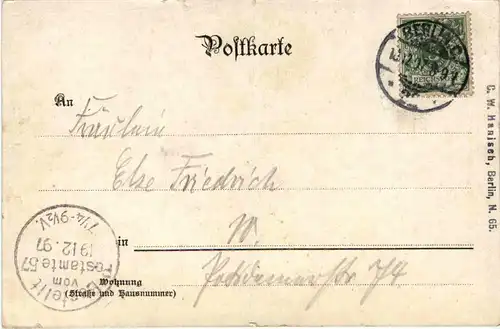 Postkarte
An
Fräulein
Else Friedrich
in W.
Potsdamerstr 74
Wohnung
(Straße und Hausnummer)
Bestellt
vom
Postamte 57
19.12.97
7¼-9½V.
BERLIN
REICHSPOST
C. W. Hanisch, Berlin, N. 65.